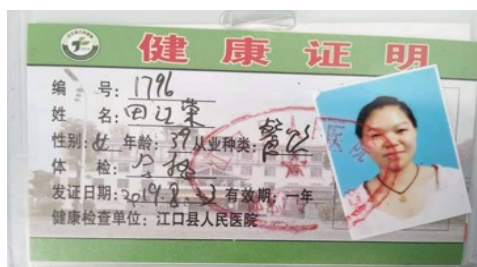 健康证明
编 号: 1796
姓 名: 田江荣
性别: 女 年龄: 39 从业种类: 餐饮
体 检: 合格
发证日期: 2019.8.23 有效期: 一年
健康检查单位: 江口县人民医院
医院